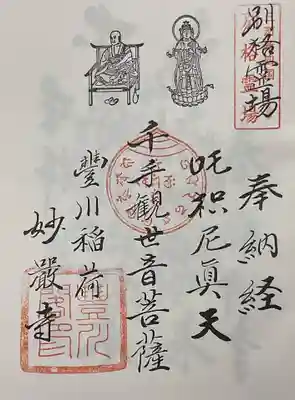 別格霊場
奉納経
吒枳尼真天
千手観世音菩薩
豐川稲荷
妙嚴寺